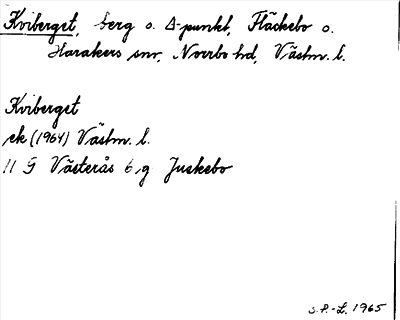 Kviberget, berg o. Δ-punkt, Fläckebo o.
Harakers snr, Norrbo hd, Västm. l.
Kviberget
ek (1964) Västm. l.
11 G Västerås 6 g Juskebo
S.P.-L. 1965